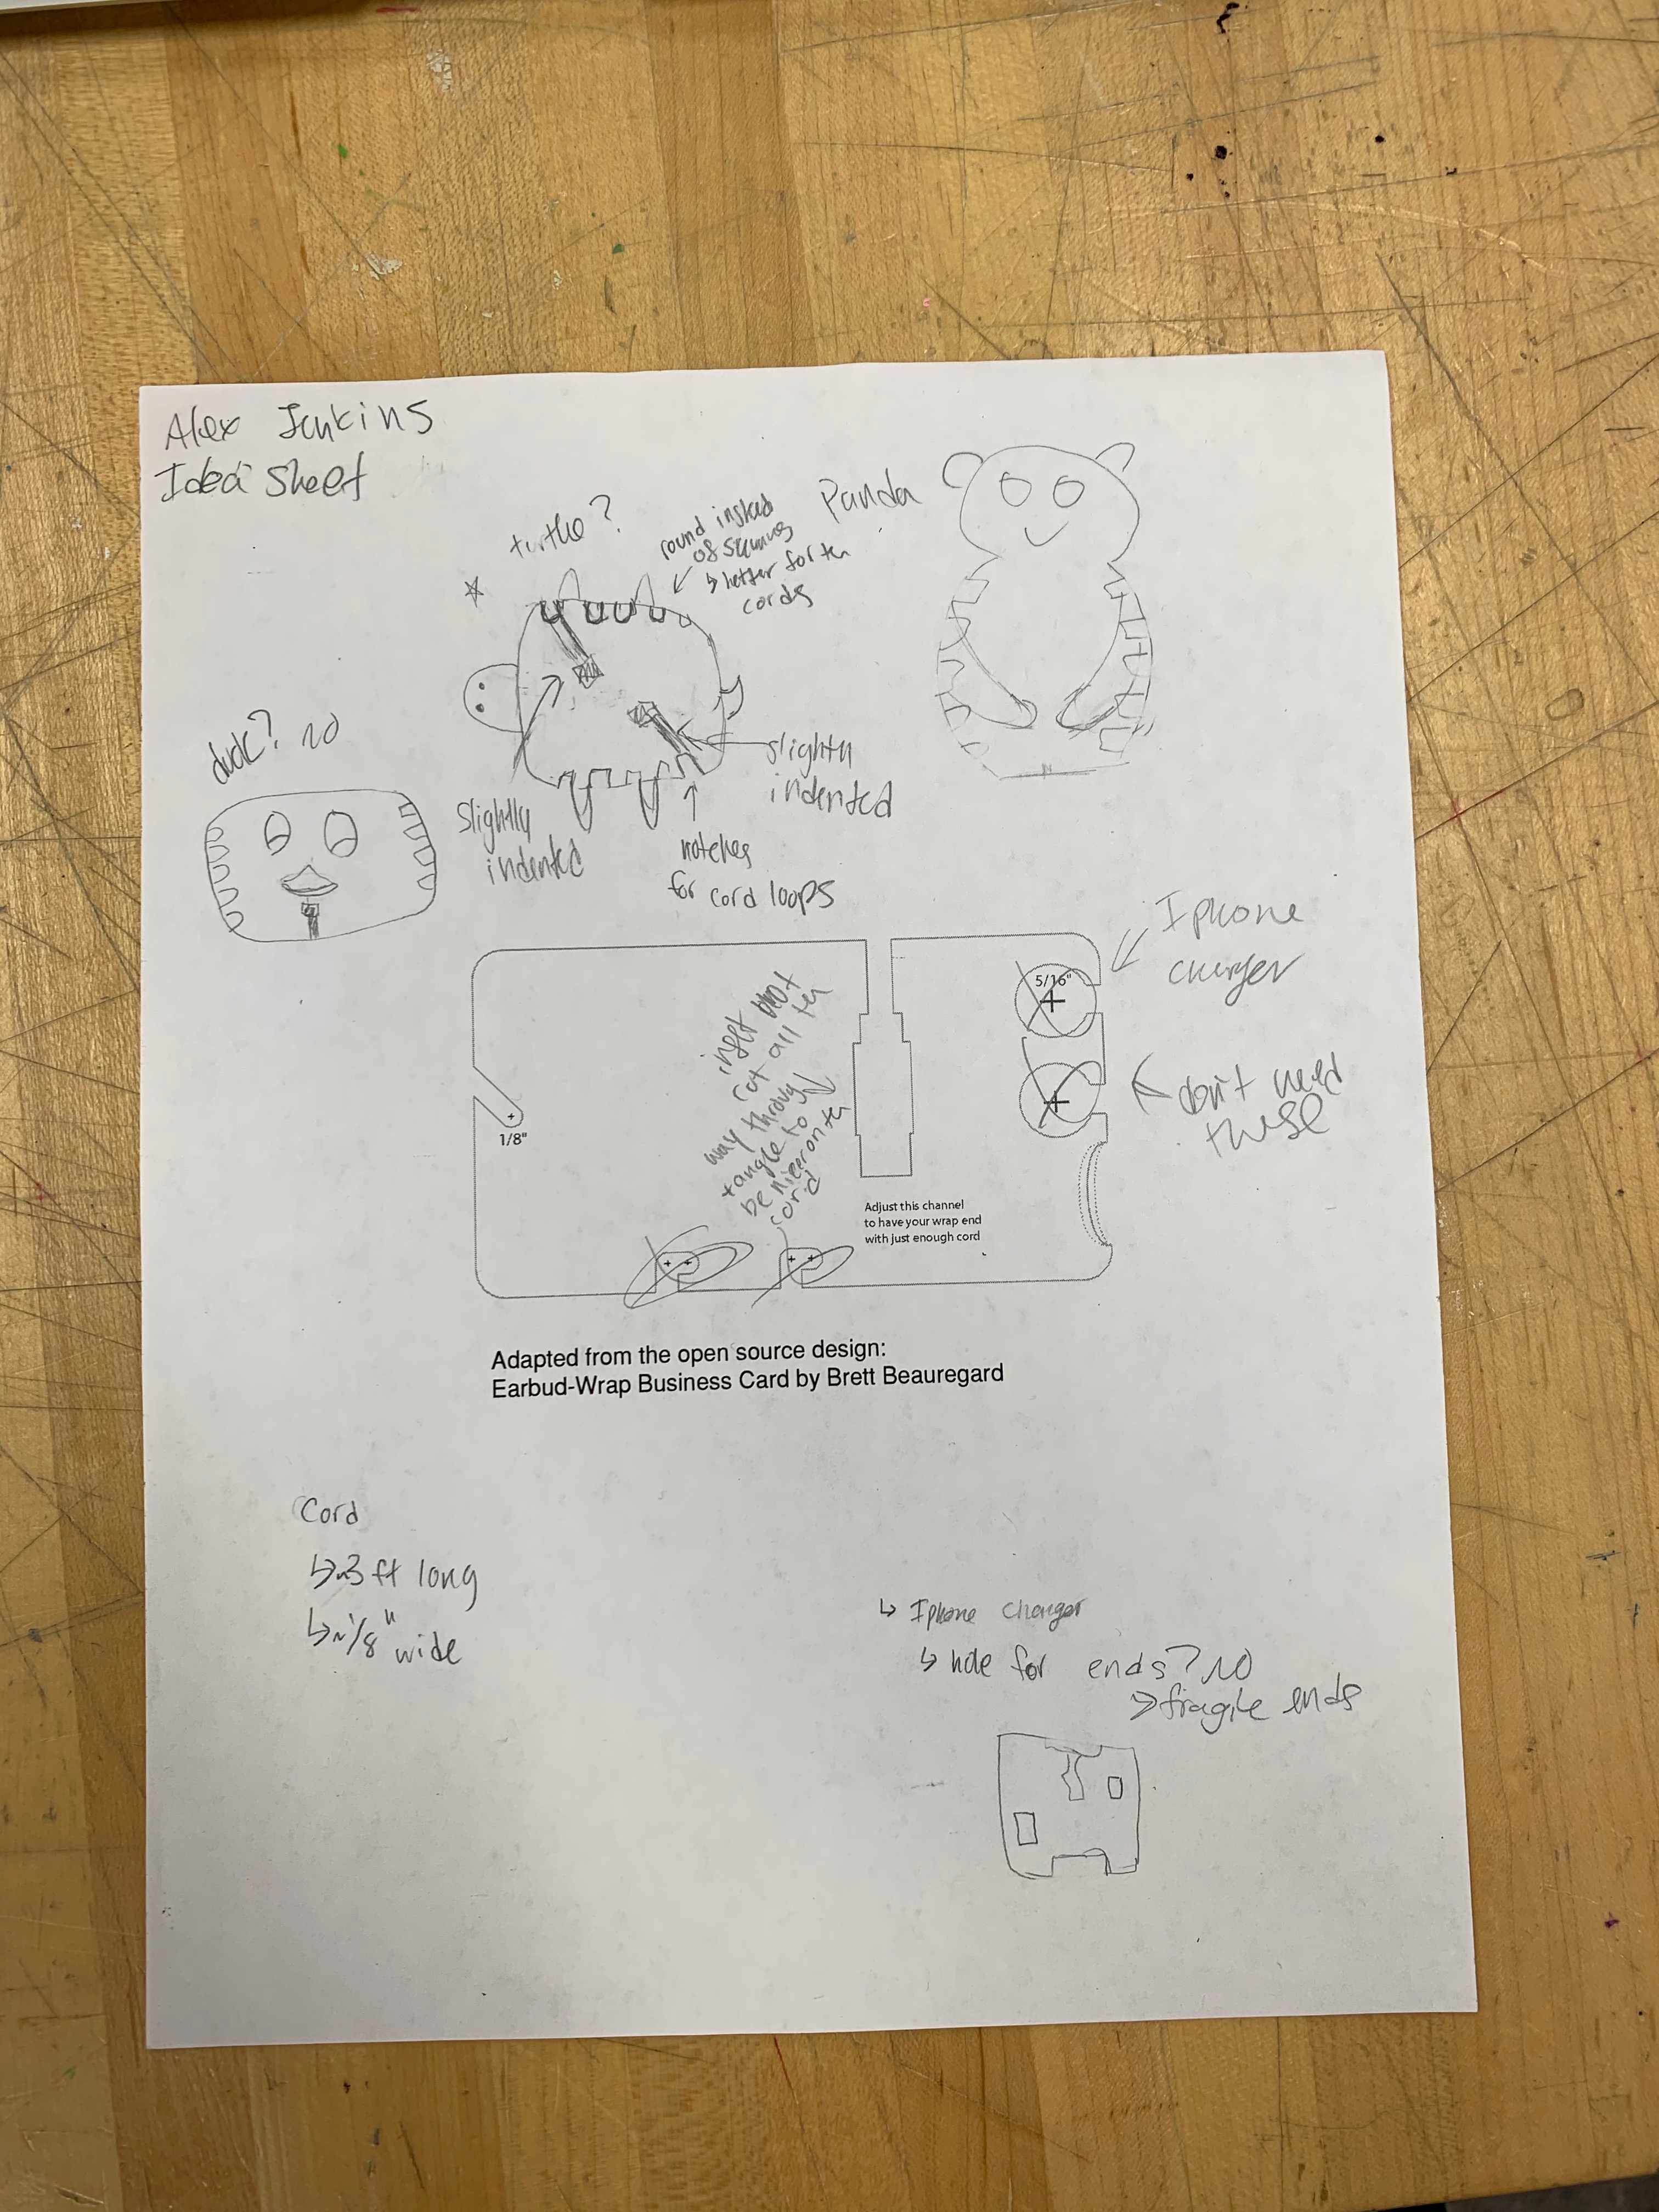 Alex Jenkins
Idea Sheet
turtle?
round instead
of squares
↳ better for the
cords
Panda
duck? no
slightly
indented
slightly
indented
notches
for cord loops
Iphone
charger
5/16"
don't need
these
inset not
cut all the
way through
tangle to
be nicer on the
cord
1/8"
Adjust this channel
to have your wrap end
with just enough cord
Adapted from the open source design:
Earbud-Wrap Business Card by Brett Beauregard
Cord
↳ ~3 ft long
↳ ~1/8" wide
↳ Iphone charger
↳ hole for ends? NO
↳ fragile ends